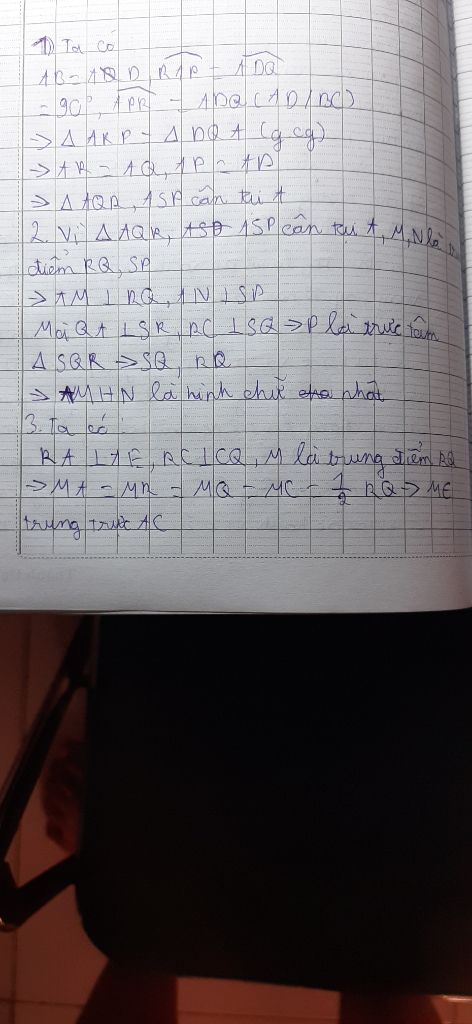 1) Ta có
AB = AD, RAP = ADQ
= 90°, APR = ADQ (AD//BC)
=> Δ ARP = Δ DQA (g cg)
=> AR = AQ, AP = AD
=> Δ AQR, ASP cân tại A
2. Vì Δ AQR, ASP cân tại A, M, N là
điểm RQ, SP
=> AM ⊥ RQ, AN ⊥ SP
Mà QA ⊥ SR, RC ⊥ SQ => P là trực tâm
Δ SQR => SQ, RQ
=> AMHN là hình chữ nhật
3. Ta có
RA ⊥ AE, RC ⊥ CQ, M là trung điểm RQ
=> MA = MR = MQ = MC = 1/2 RQ => ME
trung trực AC